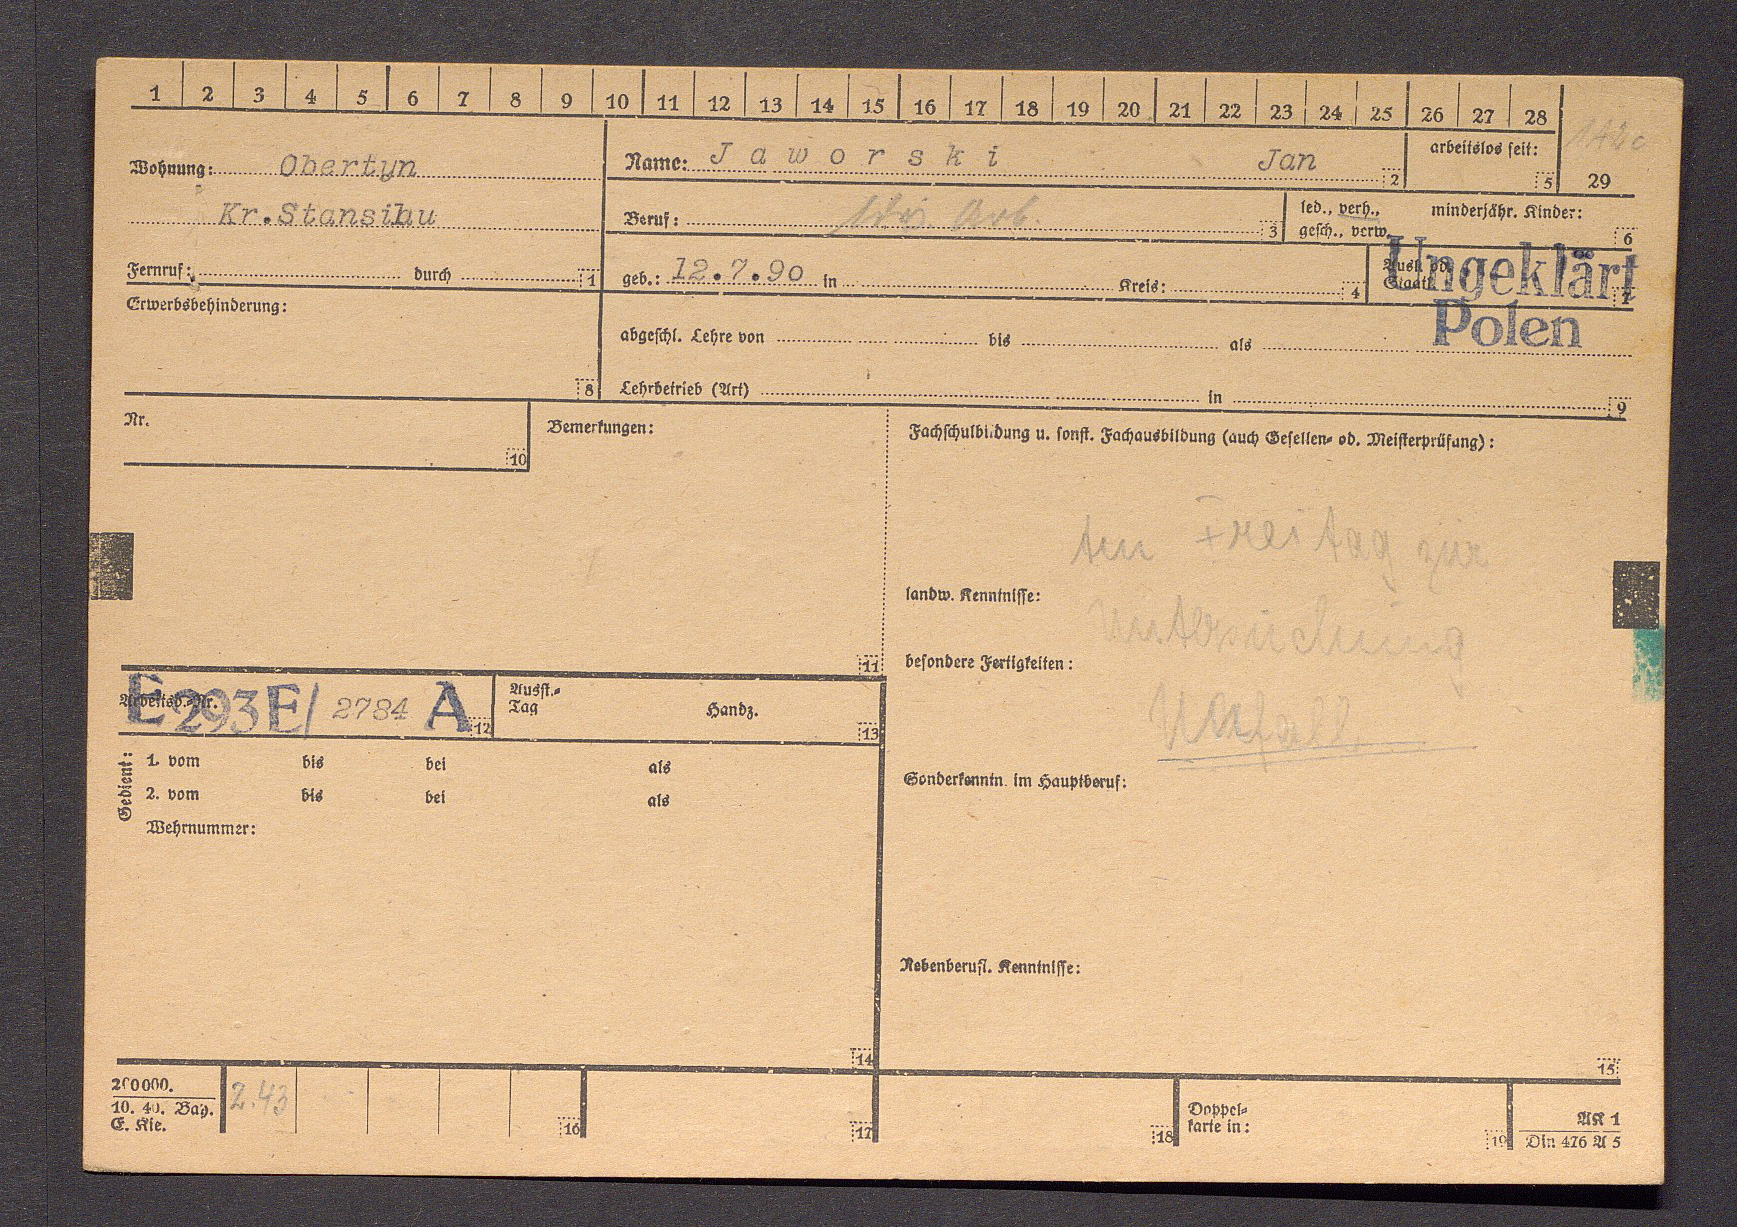 1 2 3 4 5 6 7 8 9 10 11 12 13 14 15 16 17 18 19 20 21 22 23 24 25 26 27 28
Wohnung: Obertyn
Kr.Stansilau
Fernruf: durch 1
Name: Jaworski Jan 2
arbeitslos seit: 5
29
Beruf: Arb. 3
led., verh., minderjähr. Kinder:
gesch., verw. 6
geb.: 12.7.90 in Kreis: 4
Ausl. od.
Staatl. 7
Ungeklärt
Polen
Erwerbsbehinderung:
8
abgeschl. Lehre von bis als
Lehrbetrieb (Art) in 9
Nr.
10
Bemerkungen:
11
Fachschulbildung u. sonst. Fachausbildung (auch Gesellen- od. Meisterprüfung):
Freitag zur
landw. Kenntnisse:
Untersuchung
besondere Fertigkeiten:
Unfall
Sonderkenntn. im Hauptberuf:
Nebenberufl. Kenntnisse:
15
Arbeitsb.-Nr.
E 293 E/ 2784 A 12
Ausst.-
Tag Handz. 13
Gedient:
1. vom bis bei als
2. vom bis bei als
Wehrnummer:
14
200000.
10. 40. Bay.
E. Kie.
2.43
16
17
18
Doppel-
karte in:
19
AK 1
Din 476 A 5